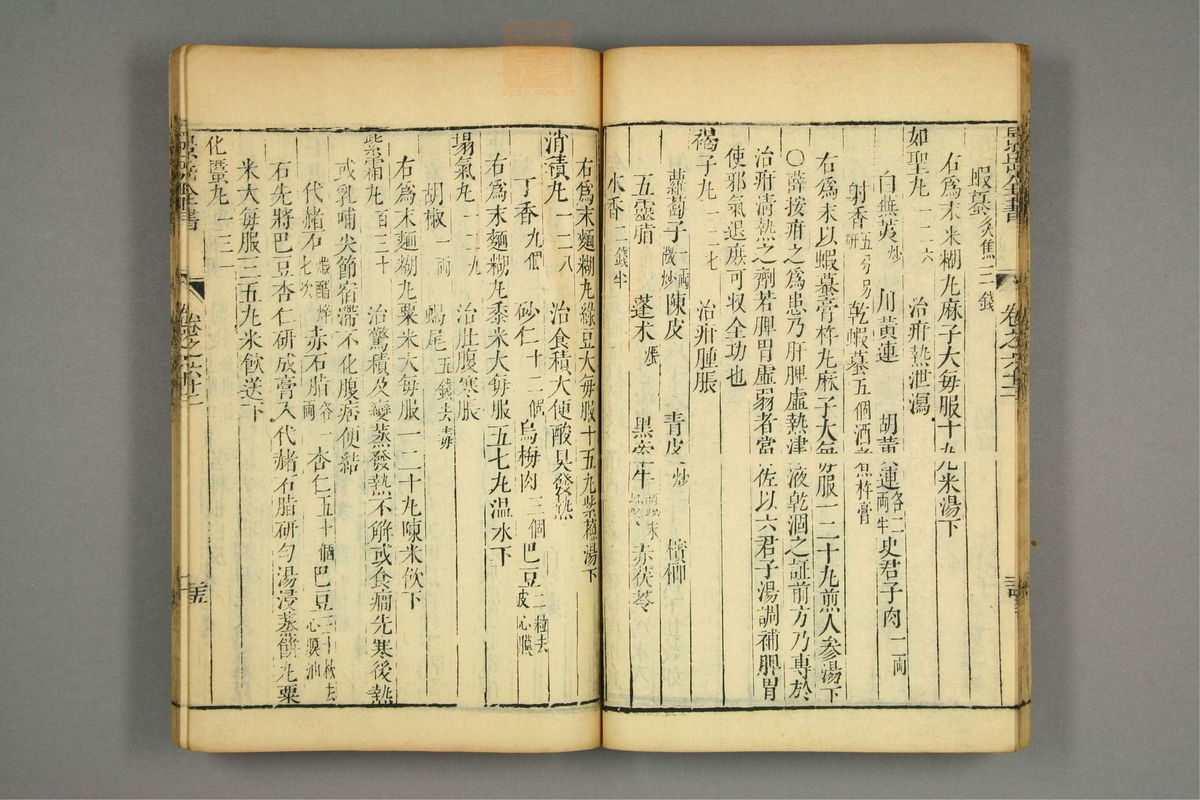 景岳全書 卷之六十二
蝦蟇炙焦三錢
右爲末米糊丸麻子大每服十九丸米湯下
如聖丸一二六 治疳熱泄瀉
白蕪荑炒 川黃連 胡黃連各二兩半 史君子肉一兩
射香五分另研 乾蝦蟇五個酒煮杵膏
右爲末以蝦蟇膏杵丸麻子大每服一二十丸煎人參湯下
○薛按疳之爲患乃肝脾虛熱津液乾涸之証前方乃專於
治疳清熱之劑若脾胃虛弱者當佐以六君子湯調補脾胃
使邪氣退庶可収全功也
褐子丸一二七 治疳腫脹
蘿蔔子一兩微炒 陳皮 青皮炒 檳榔
五靈脂 蓬朮煨 黑牽牛 赤茯苓
木香二錢半
右爲末麵糊丸綠豆大每服十五丸紫蘇湯下
消積丸一二八 治食積大便酸臭發熱
丁香九個 砂仁十二個 烏梅肉三個 巴豆二粒去皮心膜
右爲末麵糊丸黍米大每服五七丸温水下
塌氣丸一二九 治肚腹寒脹
胡椒一兩 蝎尾五錢去毒
右爲末麵糊丸粟米大每服一二十丸陳米飲下
紫霜丸百三十 治驚積及變蒸發熱不解或食癇先寒後熱
或乳哺失節宿滯不化腹痞便結
代赭石煅醋焠七次 赤石脂各一兩 杏仁五十個 巴豆三十枚去心膜油
右先將巴豆杏仁研成膏入代赭石脂研勻湯浸蒸餅丸粟
米大每服三五丸米飲送下
化䘌丸一三一
景岳全書 卷之六十二